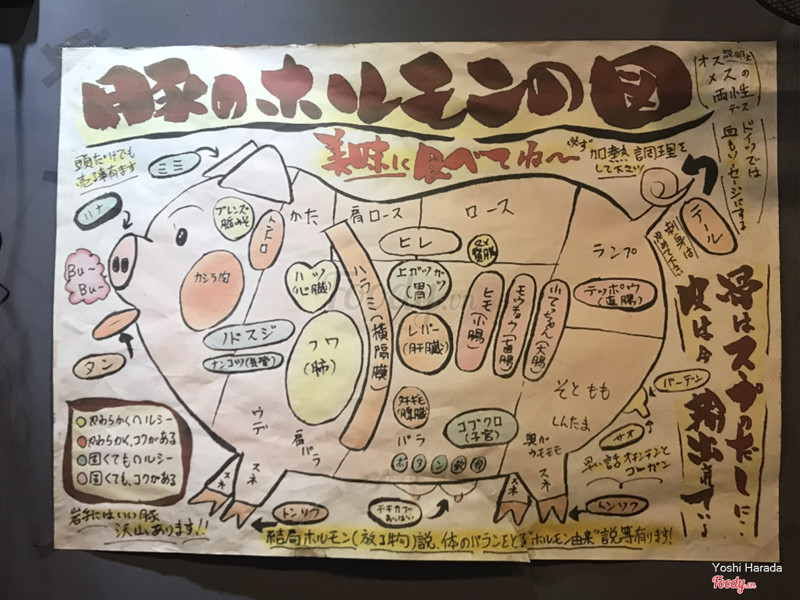 豚のホルモンの図
美味しく食べてね〜
必ず加熱調理を
して下さい
オススメの
頭だけでも
売る事有ます
ミミ
ハナ
Bu~
Bu~
タン
ブレンズ・
脳みそ
トントロ
カシラ肉
かた
肩ロース
ロース
ランプ
テール
刺身は
ヒレ
マメ
腎臓
ハツ
(心臓)
ハラミ(横隔膜)
上ガツ/ガツ
(胃)
レバー
(肝臓)
ヒモ(小腸)
モウチョウ(盲腸)
小てちゃん(大腸)
テッポウ
(直腸)
ノドスジ
ナンコツ(気管)
フワ
(肺)
チギモ
(脾臓)
バラ
コブクロ
(子宮)
そともも
しんたま
ウデ
肩バラ
スネ
スネ
スネ
スネ
トンソク
トンソク
チチカブ
おっぱい
バーテン
サオ
黒い話 オチンチンと
コーガン
ドイツでは
血もソーセージにする
骨はスープのだしに…
皮は今輸出されている
やわらかくヘルシー
やわらかく、コクがある
固くてもヘルシー
固くても、コクがある
岩手にはいい豚
沢山あります!!
結局ホルモン(放る物)説、体のバランをとる"ホルモン由来"説等有ります!
Foody.vn
Yoshi Harada
Foody.vn